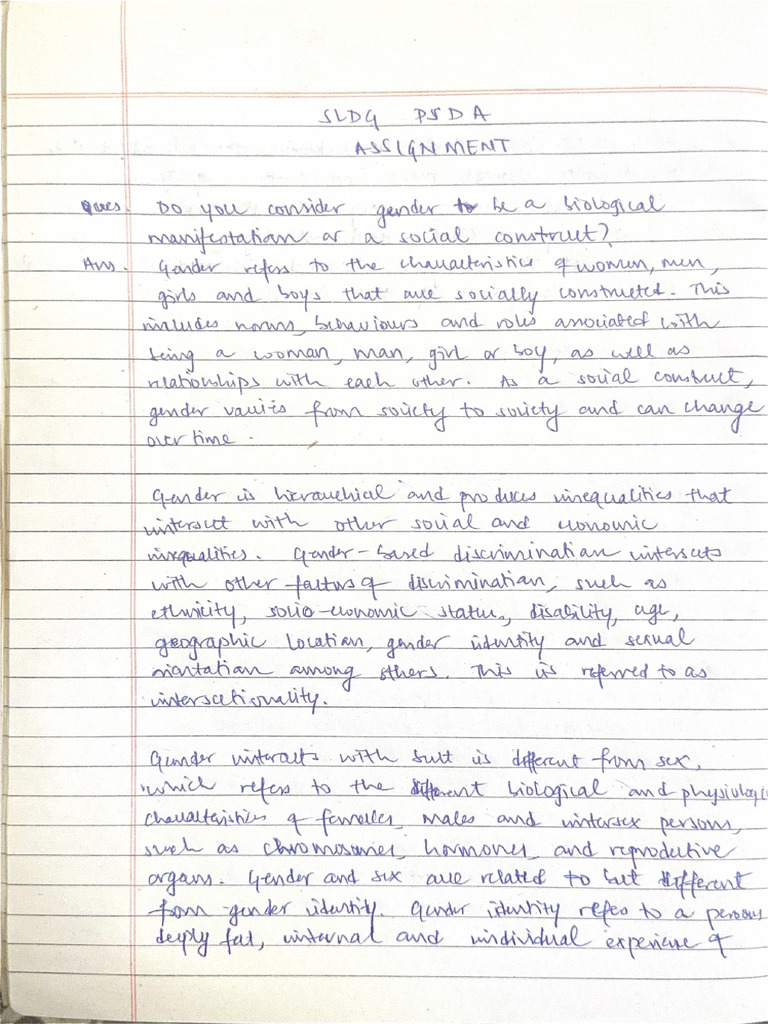 SLDG PSDA
ASSIGNMENT
Ques. Do you consider gender to be a biological
manifestation or a social construct?
Ans. Gender refers to the characteristics of women, men,
girls and boys that are socially constructed. This
includes norms, behaviours and roles associated with
being a woman, man, girl or boy, as well as
relationships with each other. As a social construct,
gender varies from society to society and can change
over time.
Gender is hierarchial and produces inequalities that
intersect with other social and economic
inequalities. Gender-based discrimination intersects
with other factors of discrimination, such as
ethnicity, socio-economic status, disability, age,
geographic location, gender identity and sexual
orientation among others. This is referred to as
intersectionality.
Gender interacts with but is different from sex,
which refers to the different biological and physiologic
characteristics of females, males and intersex persons,
such as chromosomes, hormones, and reproductive
organs. Gender and sex are related to but different
from gender identity. Gender identity refers to a persons
deeply felt, internal and individual experience of